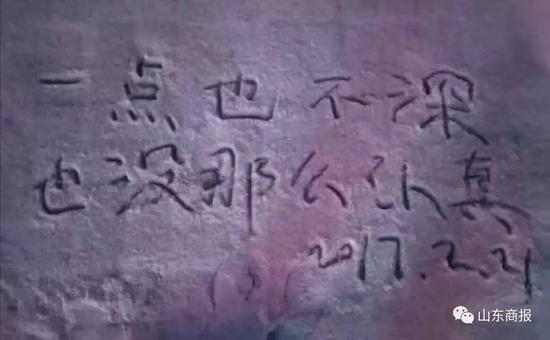 一点也不深
也没那么认真
2017.2.21
山东商报